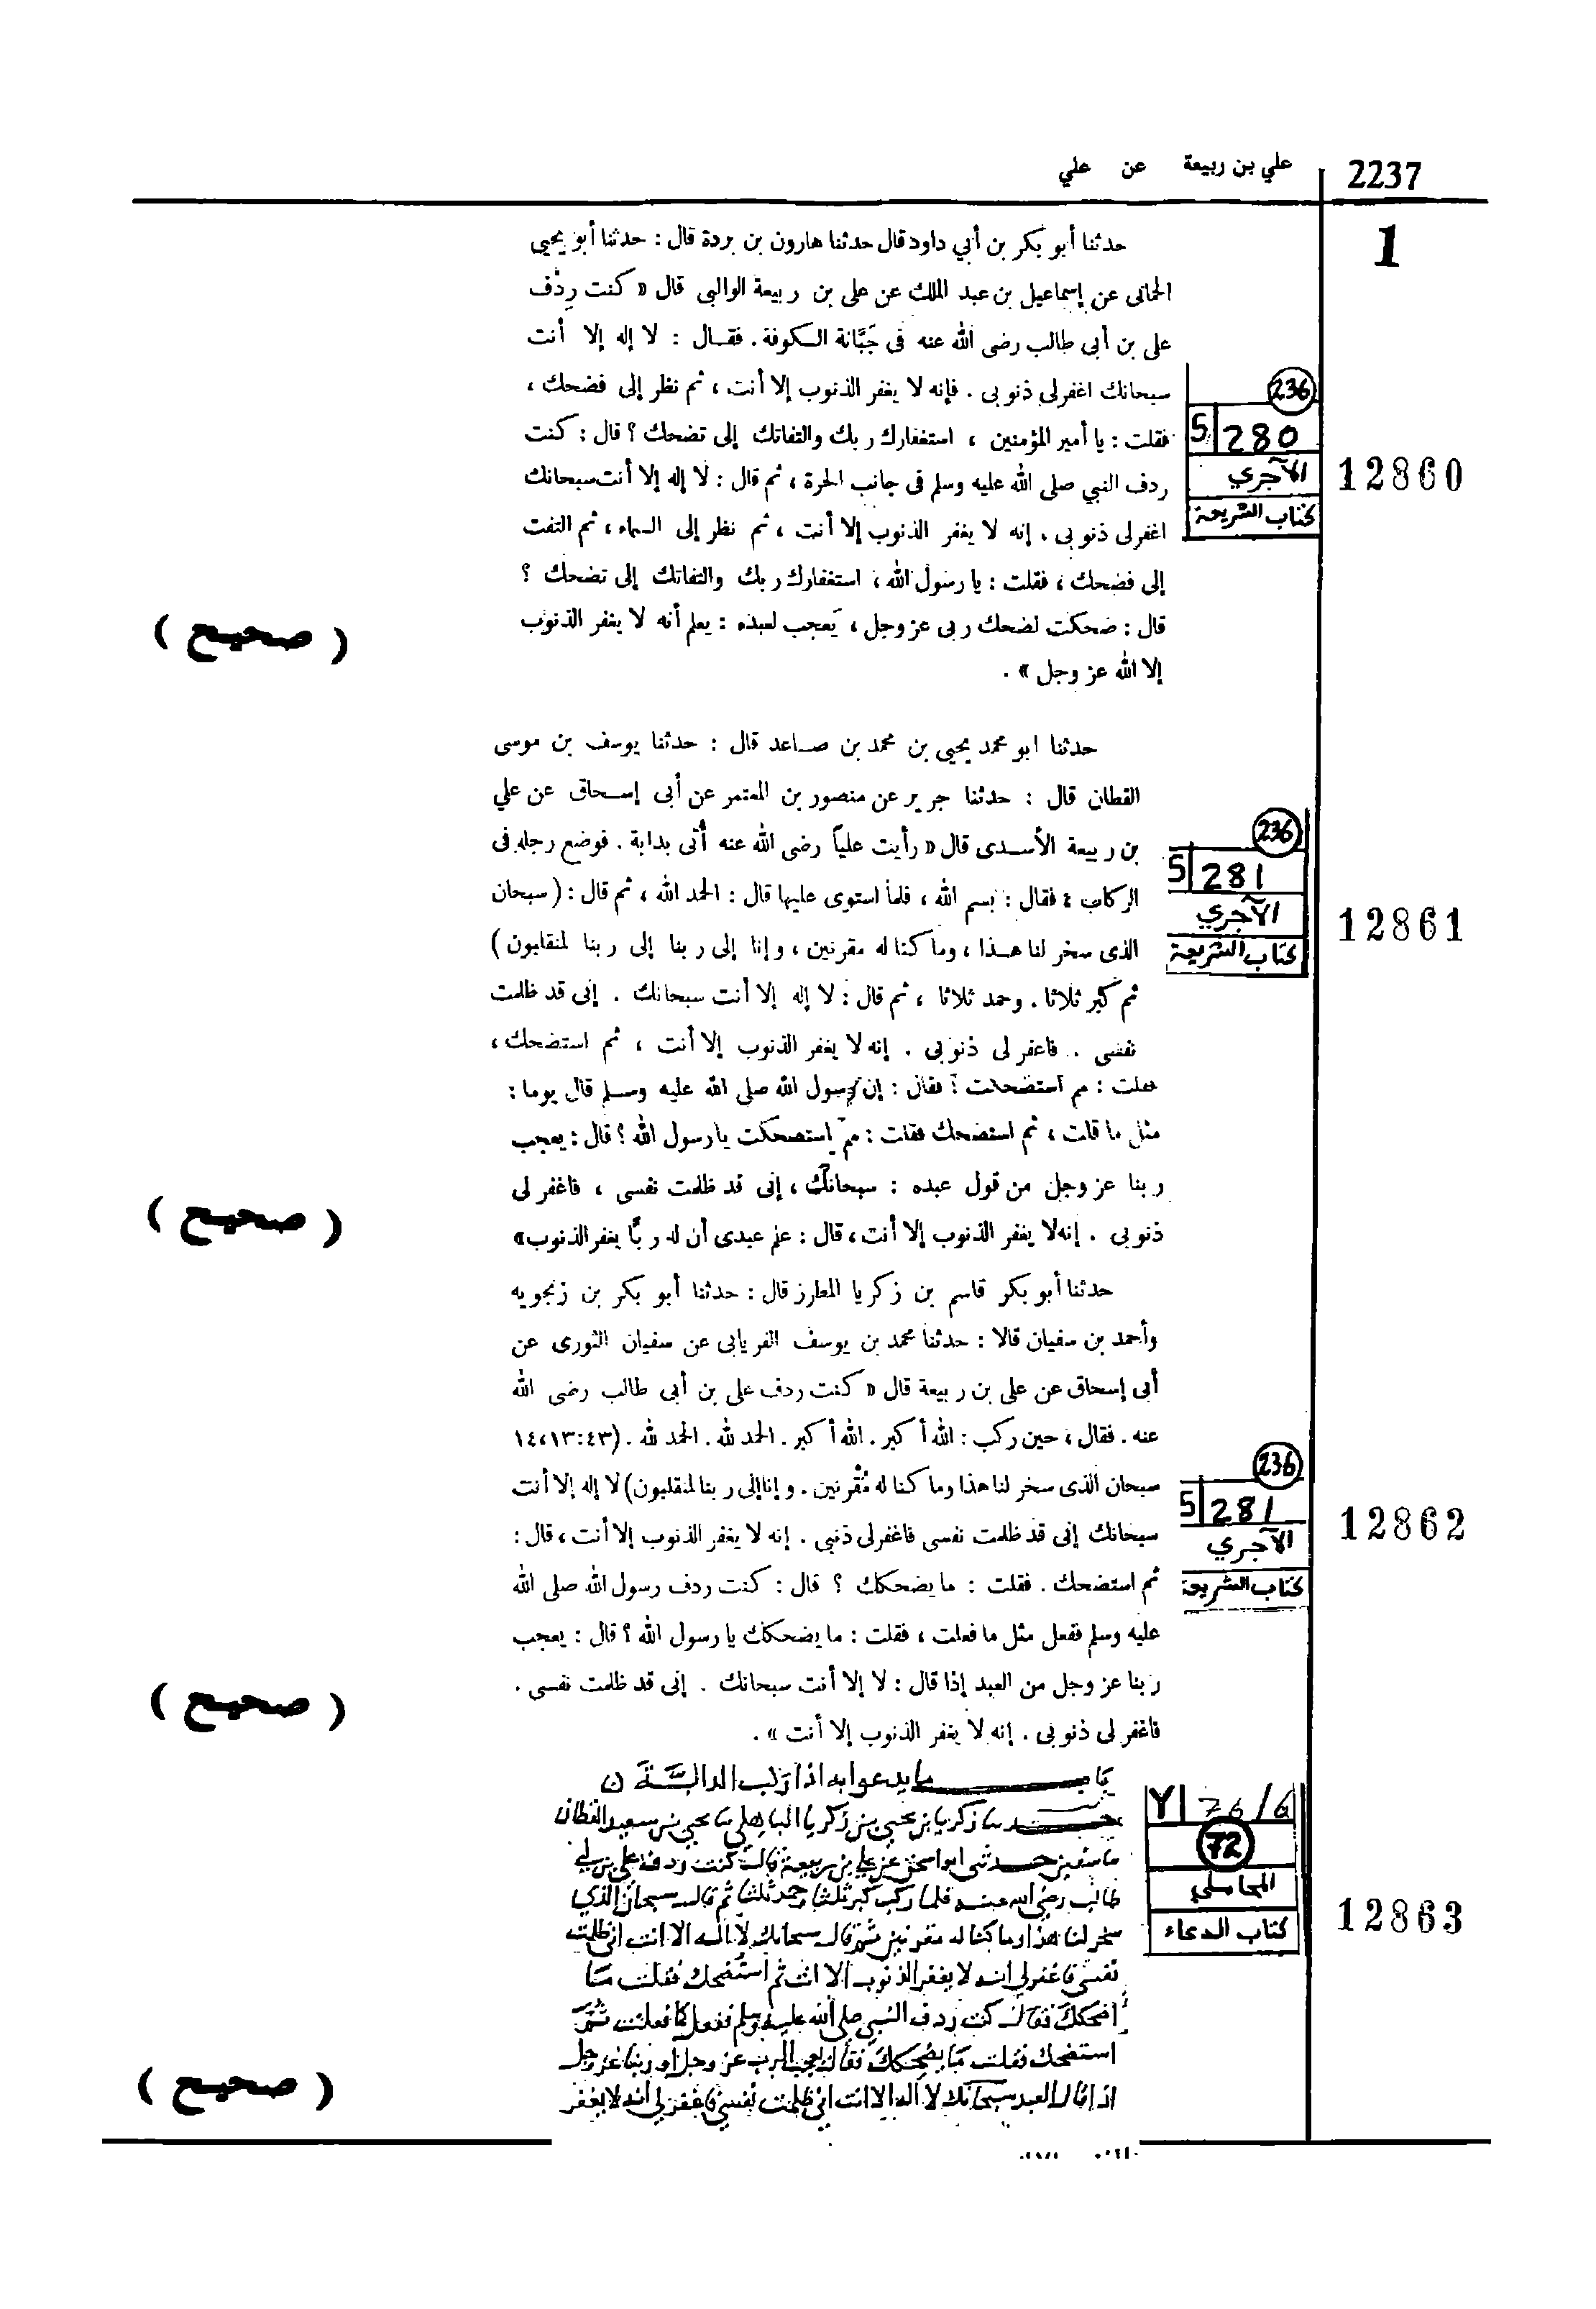 2237
علي بن ربيعة عن علي
1
حدثنا أبو بكر بن أبي داود قال حدثنا هارون بن بردة قال : حدثنا أبو يحيى
الحمانى عن إسماعيل بن عبد الملك عن على بن ربيعة الوالبى قال « كنت رِدْف
على بن أبى طالب رضى الله عنه فى جَبَّانة الكوفة . فقال : لا إله إلا أنت
سبحانك اغفر لى ذنوبى . فإنه لا يغفر الذنوب إلا أنت ، ثم نظر إلى فضحك ،
فقلت : يا أمير المؤمنين ، استغفارك ربك والتفاتك إلى تضحك ؟ قال : كنت
ردف النبي صلى الله عليه وسلم فى جانب الحرة ، ثم قال : لا إله إلا أنت سبحانك
اغفر لى ذنوبى . إنه لا يغفر الذنوب إلا أنت ، ثم نظر إلى السماء ، ثم التفت
إلى فضحك ، فقلت : يا رسول الله ، استغفارك ربك والتفاتك إلى تضحك ؟
قال : ضحكت لضحك ربى عز وجل ، يَعجب لعبده : يعلم أنه لا يغفر الذنوب
إلا الله عز وجل » .
236
5 280
الآجري
كتاب الشريعة
12860
( صحيح )
حدثنا ابو محمد يحيى بن محمد بن صاعد قال : حدثنا يوسف بن موسى
القطان قال : حدثنا جرير عن منصور بن المعتمر عن أبى إسحاق عن علي
بن ربيعة الأسدى قال « رأيت علياً رضى الله عنه أُتى بدابة . فوضع رجله فى
الركاب ، فقال : بسم الله ، فلما استوى عليها قال : الحمد الله ، ثم قال : ( سبحان
الذى سخر لنا هذا ، وما كنا له مقرنين ، وإنا إلى ربنا إلى ربنا لمنقلبون )
ثم كبّر ثلاثا . وحمد ثلاثا ، ثم قال : لا إله إلا أنت سبحانك . إنى قد ظلمت
نفسى . فاغفر لى ذنوبى . إنه لا يغفر الذنوب إلا أنت ، ثم استضحك ،
فقلت : مم استضحكت ؟ فقال : إن رسول الله صلى الله عليه وسلم قال يوما :
مثل ما قلت ، ثم استضحك فقلت : ممّ استضحكت يا رسول الله ؟ قال : يعجب
ربنا عز وجل من قول عبده : سبحانك ، إنى قد ظلمت نفسى ، فاغفر لى
ذنوبى . إنه لا يغفر الذنوب إلا أنت ، قال : علم عبدى أن له ربًّا يغفر الذنوب »
236
5 281
الآجري
كتاب الشريعة
12861
( صحيح )
حدثنا أبو بكر قاسم بن زكريا المطرز قال : حدثنا أبو بكر بن زنجويه
وأحمد بن سفيان قالا : حدثنا محمد بن يوسف الفريابى عن سفيان الثورى عن
أبى إسحاق عن على بن ربيعة قال « كنت ردف على بن أبى طالب رضى الله
عنه . فقال ، حين ركب : الله أكبر . الله أكبر . الحمد لله . الحمد لله . (٤٣:١٣،١٤
سبحان الذى سخر لنا هذا وما كنا له مُقْرنين . وإنا إلى ربنا لمنقلبون) لا إله إلا أنت
سبحانك إنى قد ظلمت نفسى فاغفر لى ذنبى . إنه لا يغفر الذنوب إلا أنت ، قال :
ثم استضحك . فقلت : ما يضحكك ؟ قال : كنت ردف رسول الله صلى الله
عليه وسلم ففعل مثل ما فعلت ، فقلت : ما يضحكك يا رسول الله ؟ قال : يعجب
ربنا عز وجل من العبد إذا قال : لا إلا أنت سبحانك . إنى قد ظلمت نفسى .
فاغفر لى ذنوبى . إنه لا يغفر الذنوب إلا أنت » .
236
5 281
الآجري
كتاب الشريعة
12862
( صحيح )
باب ما يدعوا به اذا ركب الدابة
حدثنا زكريا بن يحيى بن زكريا الباهلي نا يحيى بن سعيد القطان
نا سفين حدثني ابو اسحق عن علي بن ربيعة قال كنت ردف علي بن ابي
طالب رضي الله عنه فلما ركب كبر ثلثا وحمد ثلثا ثم قال سبحان الذي
سخر لنا هذا وما كنا له مقرنين ثم قال سبحانك لا اله الا انت اني ظلمت
نفسي فاغفر لي انه لا يغفر الذنوب الا انت ثم استضحك فقلت ما
اضحكك فقال كنت ردف النبي صلى الله عليه وسلم ففعل كما فعلت ثم
استضحك فقلت ما يضحكك فقال يعجب الرب عز وجل او ربنا عز وجل
اذا قال العبد سبحانك لا اله الا انت اني ظلمت نفسي فاغفر لي انه لا يغفر
Y 76/6
72
المحاملي
كتاب الدعاء
12863
( صحيح )